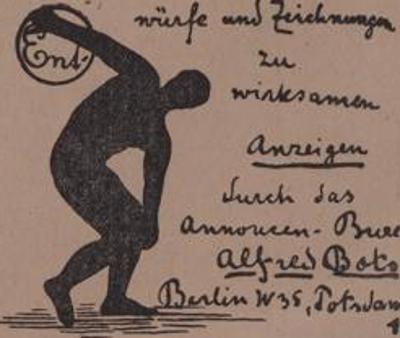 Ent-
würfe und Zeichnungen
zu
wirksamen
Anzeigen
durch das
Annoncen-Bure
Alfred Bots
Berlin W 35, Potsdam